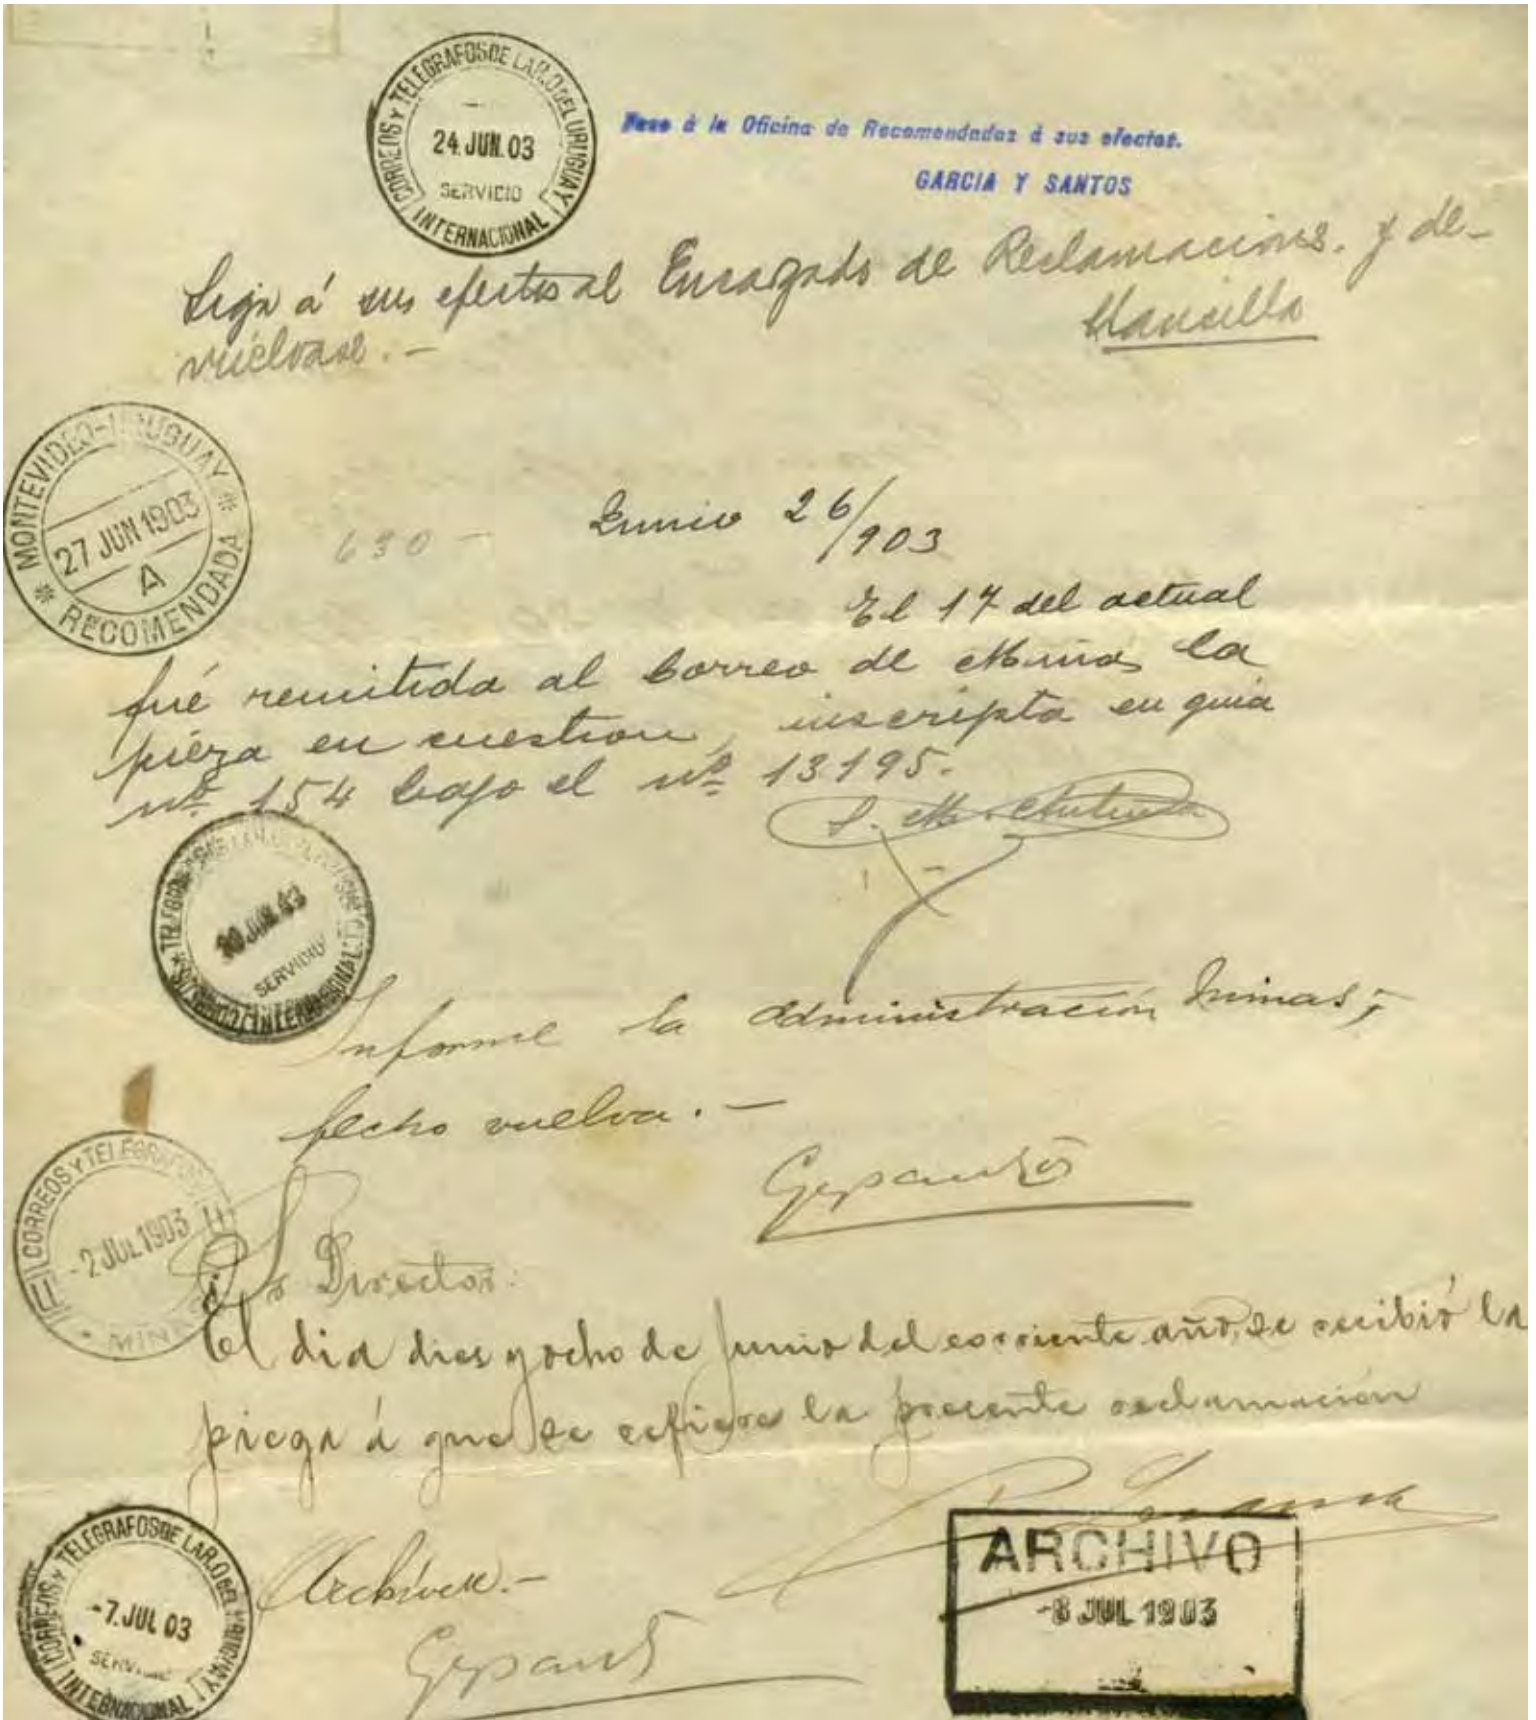 CORREOS Y TELEGRAFOS DE LA R.O. DEL URUGUAY
24 JUN. 03
SERVICIO
INTERNACIONAL
Pase á la Oficina de Recomendadas á sus efectos.
GARCIA Y SANTOS
Siga á sus efectos al Encargado de Reclamaciones. y de-
vuélvase.-
Mansilla
MONTEVIDEO-URUGUAY
27 JUN 1903
A
RECOMENDADA
630-
Junio 26/903
El 17 del actual
fué remitida al Correo de Minas la
pieza en cuestion, inscripta en guia
nº 154 bajo el nº 13195.
30 JUN. 03
SERVICIO
INTERNACIONAL
Informe la Administración Minas;
fecho vuelva.-
CORREOS Y TELEGRAFOS
-2 JUL 1903
MINAS
Sr Director:
El dia dies y ocho de Junio del corriente año, se recibió la
pieza á que se refiere la presente reclamación
CORREOS Y TELEGRAFOS DE LA R.O. DEL URUGUAY
-7. JUL 03
SERVICIO
INTERNACIONAL
Archívese.-
ARCHIVO
-8 JUL 1903